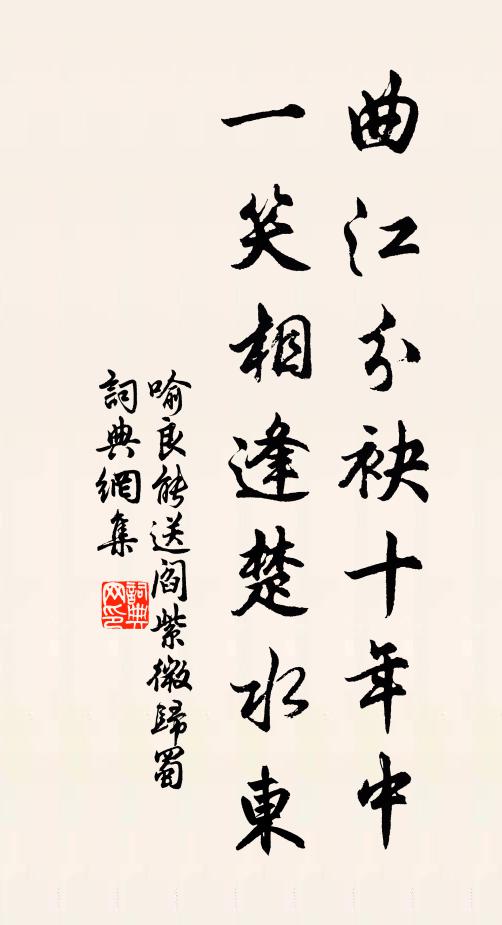 曲江分袂十年中
一笑相逢楚水東
喻良能送阎紫微歸蜀
詞典網集
詞典
网印